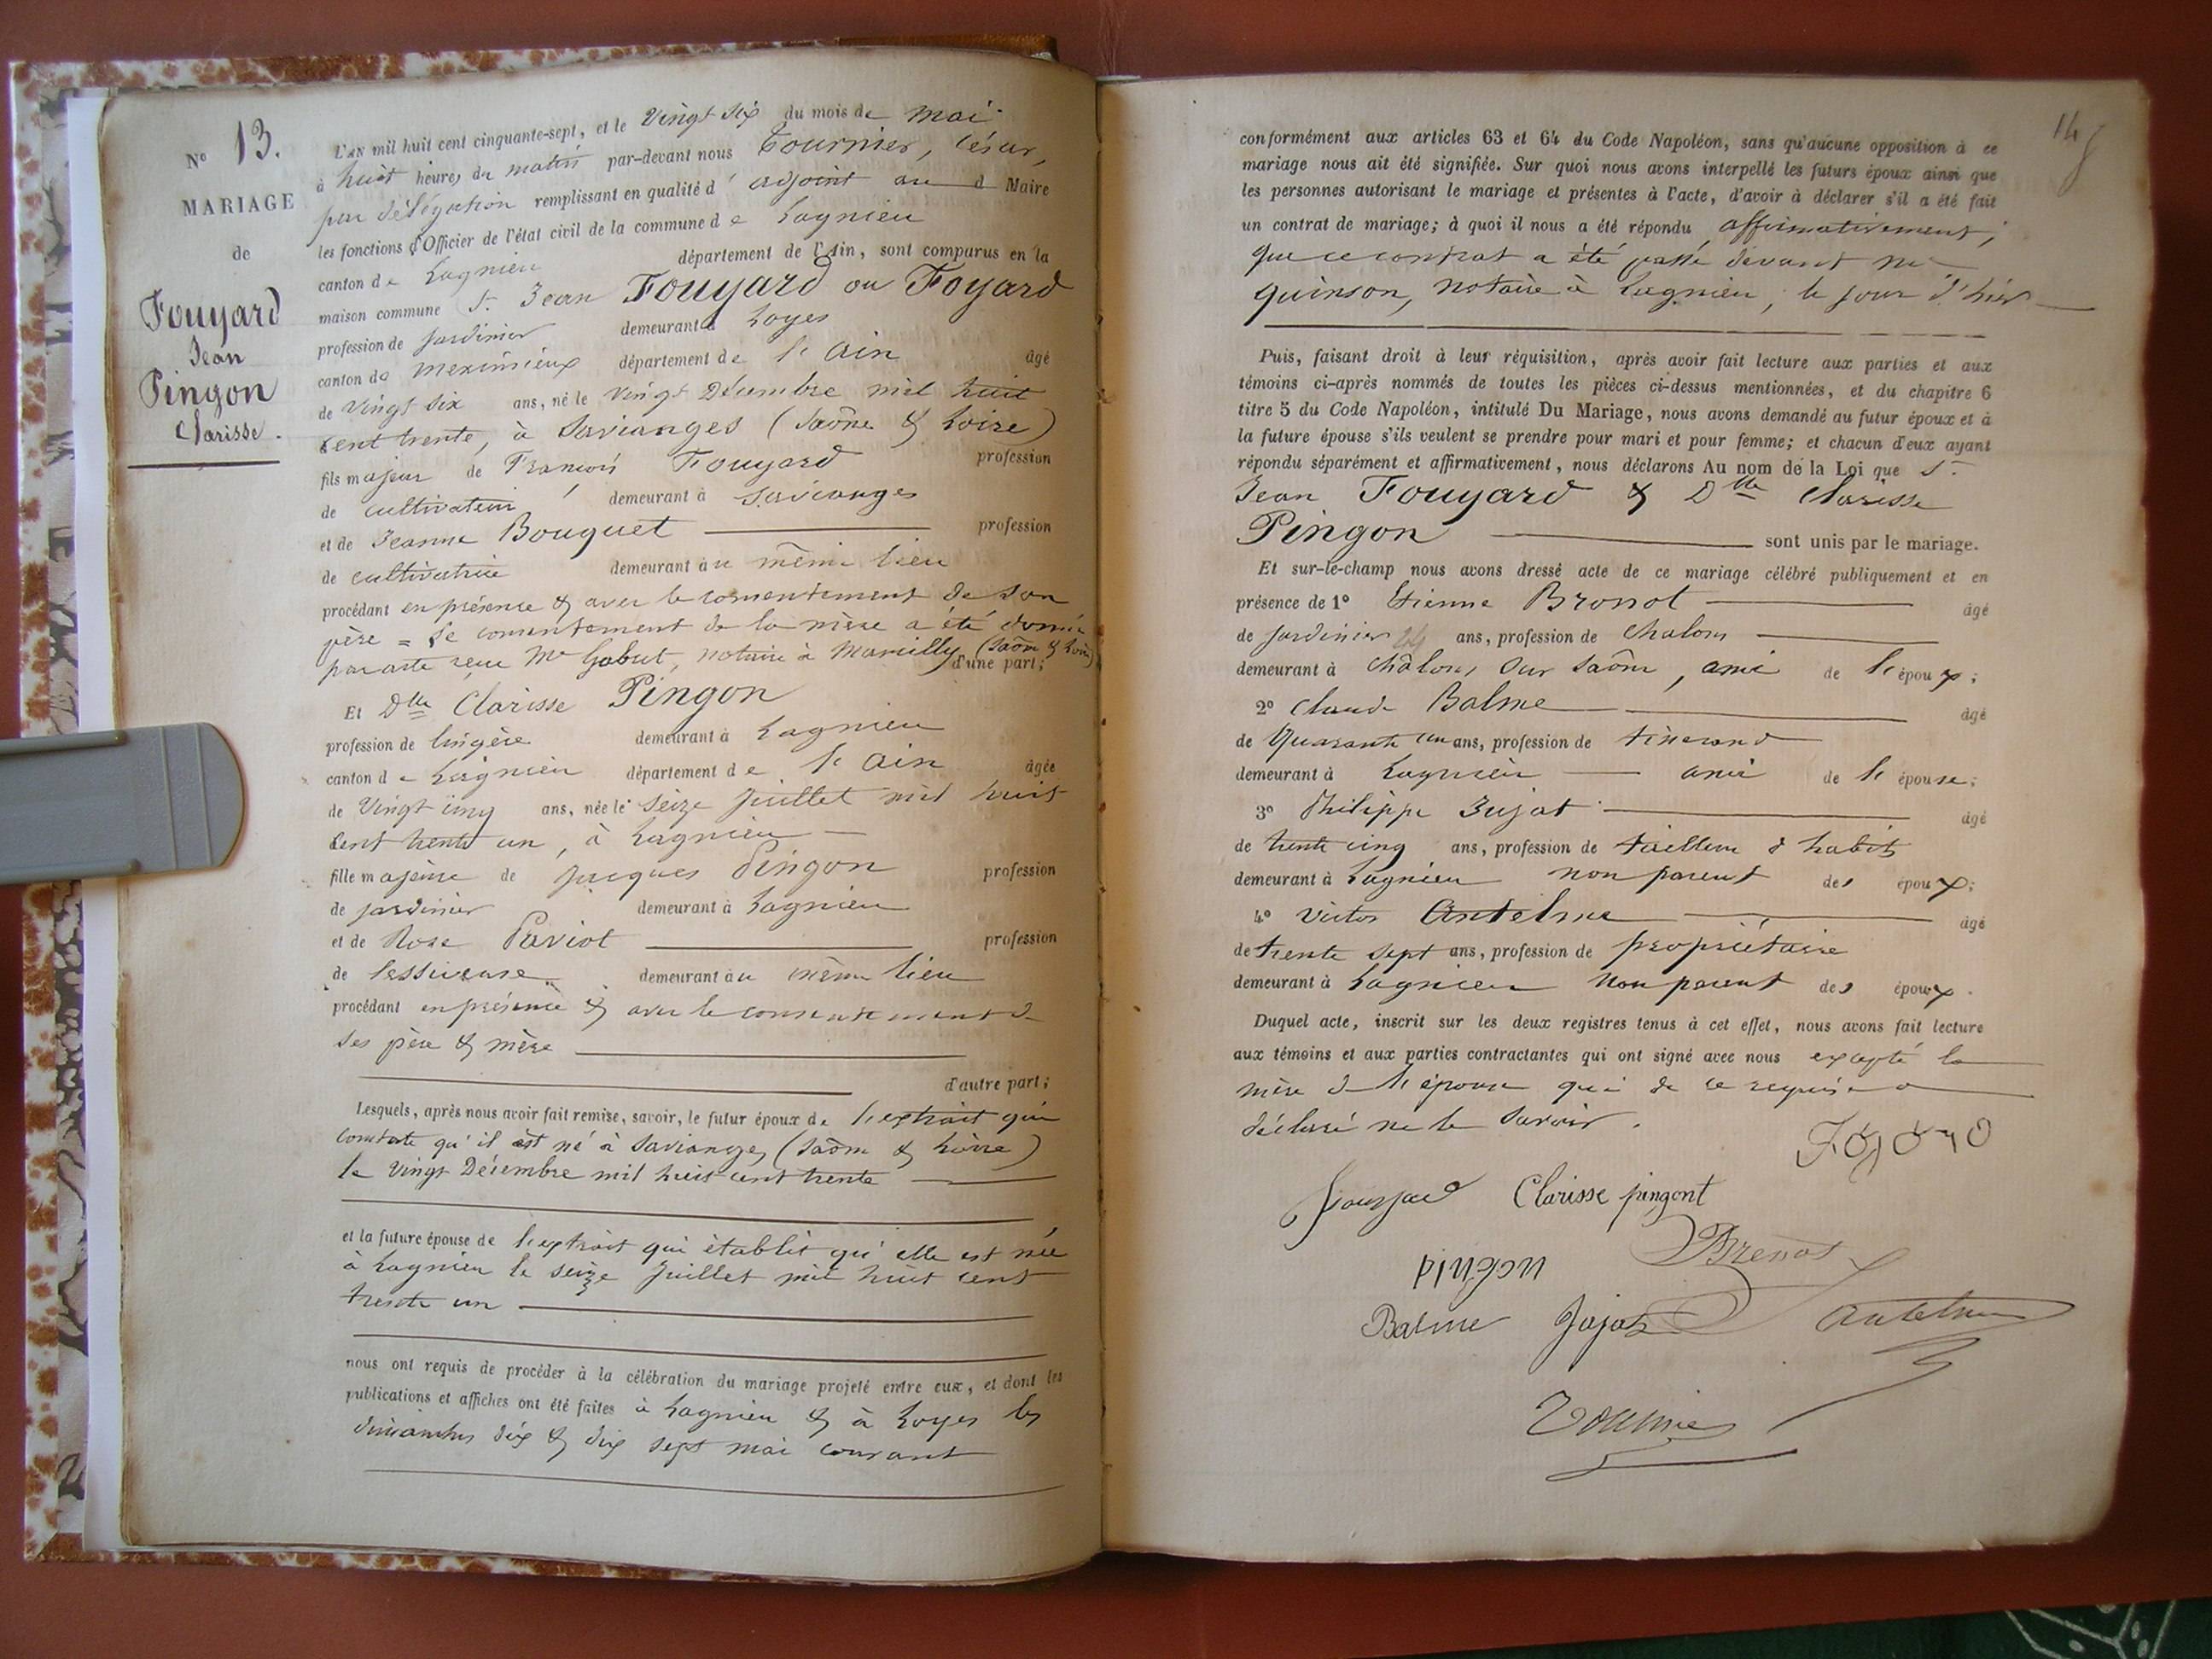 N° 13.
MARIAGE
de
Fouyard
Jean
Pingon
Clarisse.
L'an mil huit cent cinquante-sept, et le vingt six du mois de mai
à huit heures du matin par-devant nous Tournier, César,
par délégation remplissant en qualité d' adjoint au d Maire
les fonctions d'Officier de l'état civil de la commune de Lagnieu
canton de Lagnieu département de l'Ain, sont comparus en la
maison commune Sr Jean Fouyard ou Foyard
profession de jardinier demeurant à Loyes
canton de Meximieux département de l'Ain âgé
de vingt six ans, né le vingt Décembre mil huit
cent trente, à Savianges (Saône & Loire)
fils majeur de François Fouyard profession
de cultivateur, demeurant à Savianges
et de Jeanne Bouquet profession
de cultivatrice demeurant au même lieu
procédant en présence & avec le consentement de son
père = le consentement de la mère a été donné
par acte reçu Me Gabut, notaire à Marcilly (Saône & Loire)
d'une part;
Et Dlle Clarisse Pingon
profession de lingère demeurant à Lagnieu
canton de Lagnieu département de l'Ain âgée
de vingt cinq ans, née le seize juillet mil huit
cent trente un, à Lagnieu
fille majeure de Jacques Pingon profession
de jardinier demeurant à Lagnieu
et de Rose Paviot profession
de lessiveuse demeurant au même lieu
procédant en présence & avec le consentement de
ses père & mère
d'autre part;
Lesquels, après nous avoir fait remise, savoir, le futur époux de l'extrait qui
constate qu'il est né à Savianges (Saône & Loire)
le vingt Décembre mil huit cent trente
et la future épouse de l'extrait qui établit qu'elle est née
à Lagnieu le seize juillet mil huit cent
trente un
nous ont requis de procéder à la célébration du mariage projeté entre eux, et dont les
publications et affiches ont été faites à Lagnieu & à Loyes les
dimanches dix & dix sept mai courant
14
conformément aux articles 63 et 64 du Code Napoléon, sans qu'aucune opposition à ce
mariage nous ait été signifiée. Sur quoi nous avons interpellé les futurs époux ainsi que
les personnes autorisant le mariage et présentes à l'acte, d'avoir à déclarer s'il a été fait
un contrat de mariage; à quoi il nous a été répondu affirmativement,
que ce contrat a été passé devant me
Quinson, notaire à Lagnieu, le jour d'hier
Puis, faisant droit à leur réquisition, après avoir fait lecture aux parties et aux
témoins ci-après nommés de toutes les pièces ci-dessus mentionnées, et du chapitre 6
titre 5 du Code Napoléon, intitulé Du Mariage, nous avons demandé au futur époux et à
la future épouse s'ils veulent se prendre pour mari et pour femme; et chacun d'eux ayant
répondu séparément et affirmativement, nous déclarons Au nom de la Loi que Sr
Jean Fouyard & Dlle Clarisse
Pingon sont unis par le mariage.
Et sur-le-champ nous avons dressé acte de ce mariage célébré publiquement et en
présence de 1° Etienne Brossot âgé
de jardinier 24 ans, profession de Chalons
demeurant à Châlons sur Saône, ami de l'époux;
2° Claude Balme âgé
de quarante un ans, profession de tisserand
demeurant à Lagnieu ami de l'épouse;
3° Philippe Jujat âgé
de trente cinq ans, profession de tailleur d'habits
demeurant à Lagnieu non parent des époux;
4° Victor Antelme âgé
de trente sept ans, profession de propriétaire
demeurant à Lagnieu non parent des époux.
Duquel acte, inscrit sur les deux registres tenus à cet effet, nous avons fait lecture
aux témoins et aux parties contractantes qui ont signé avec nous excepté la
mère de l'épouse qui de ce requise a
déclaré ne le savoir.
Clarisse pingont
pingon
Balme Jujat Antelme
Tournier